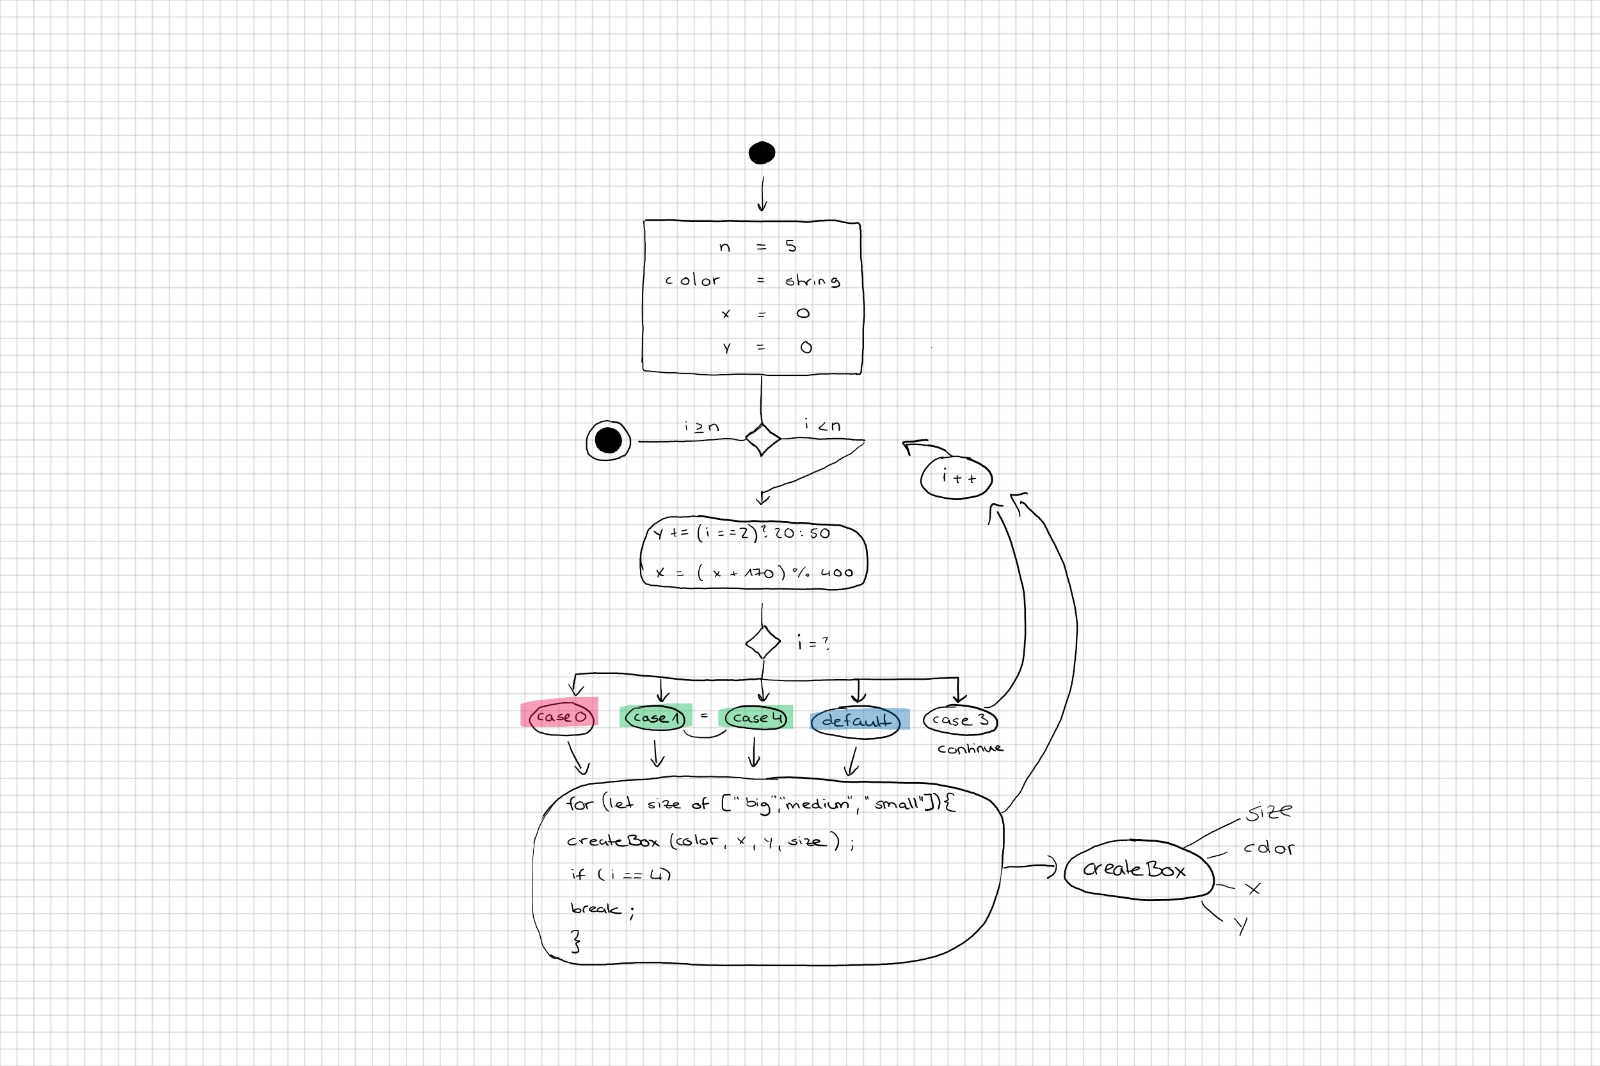 n = 5
color = string
x = 0
y = 0
i ≥ n
i < n
i ++
y += (i == 2)? 20 : 50
x = ( x + 170 ) % 400
i = ?
case 0
case 1 = case 4
default
case 3
continue
for (let size of ["big","medium","small"]){
createBox (color, x, y, size ) ;
if ( i == 4)
break ;
}
createBox
size
color
x
y